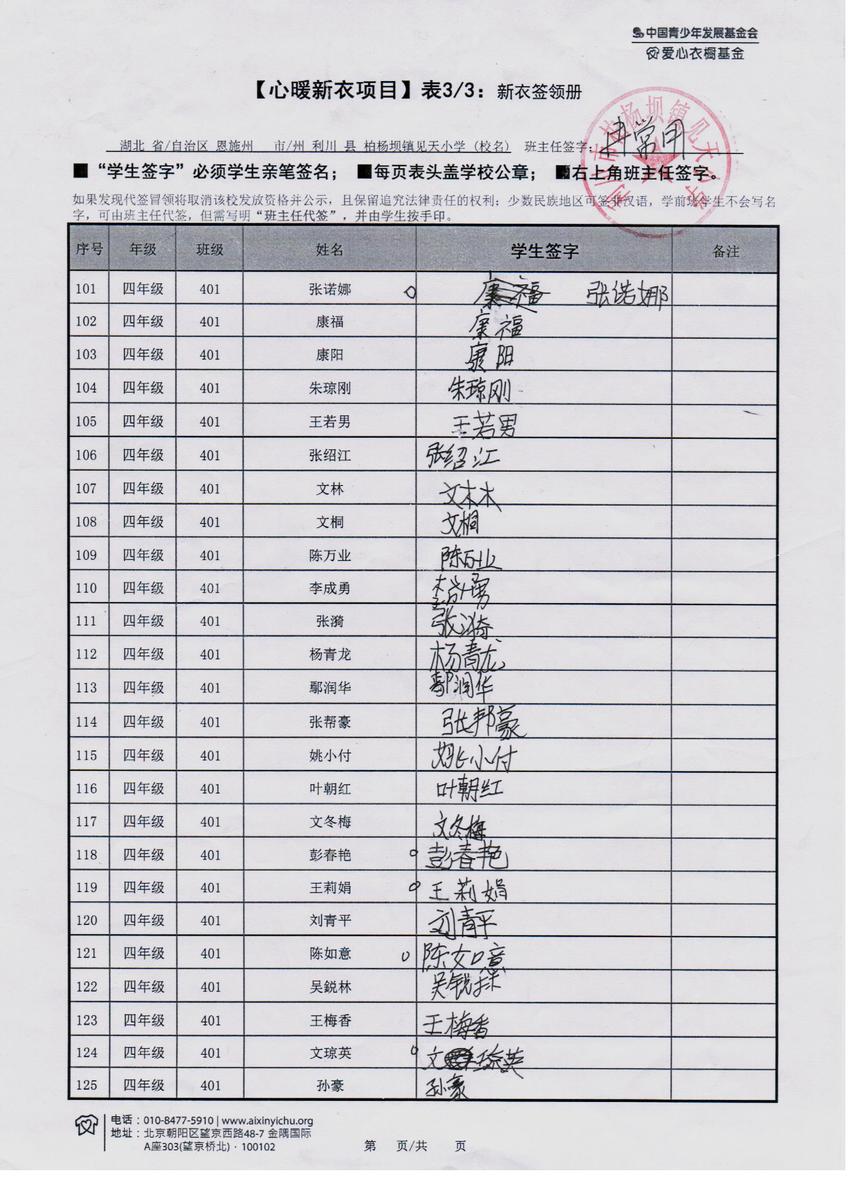 中国青少年发展基金会
爱心衣橱基金
【心暖新衣项目】表3/3：新衣签领册
湖北 省/自治区 恩施州 市/州 利川 县 柏杨坝镇见天小学（校名） 班主任签字：
■“学生签字”必须学生亲笔签名；■每页表头盖学校公章；■右上角班主任签字。
如果发现代签冒领将取消该校发放资格并公示，且保留追究法律责任的权利；少数民族地区可签非汉语，学前班学生不会写名
字，可由班主任代签，但需写明“班主任代签”，并由学生按手印。
序号 年级 班级 姓名 学生签字 备注
101 四年级 401 张诺娜 康福 张诺娜
102 四年级 401 康福 康福
103 四年级 401 康阳 康阳
104 四年级 401 朱琼刚 朱琼刚
105 四年级 401 王若男 王若男
106 四年级 401 张绍江 张绍江
107 四年级 401 文林 文木木
108 四年级 401 文桐 文桐
109 四年级 401 陈万业 陈万业
110 四年级 401 李成勇 李成勇
111 四年级 401 张漪 张漪
112 四年级 401 杨青龙 杨青龙
113 四年级 401 鄢润华 鄢润华
114 四年级 401 张帮豪 张邦豪
115 四年级 401 姚小付 姚小付
116 四年级 401 叶朝红 叶朝红
117 四年级 401 文冬梅 文冬梅
118 四年级 401 彭春艳 彭春艳
119 四年级 401 王莉娟 王莉娟
120 四年级 401 刘青平 刘青平
121 四年级 401 陈如意 陈如意
122 四年级 401 吴鋭林 吴锐林
123 四年级 401 王梅香 王梅香
124 四年级 401 文琼英 文琼英
125 四年级 401 孙豪 孙豪
电话：010-8477-5910 | www.aixinyichu.org
地址：北京朝阳区望京西路48-7 金隅国际
A座303(望京桥北)·100102
第 页/共 页